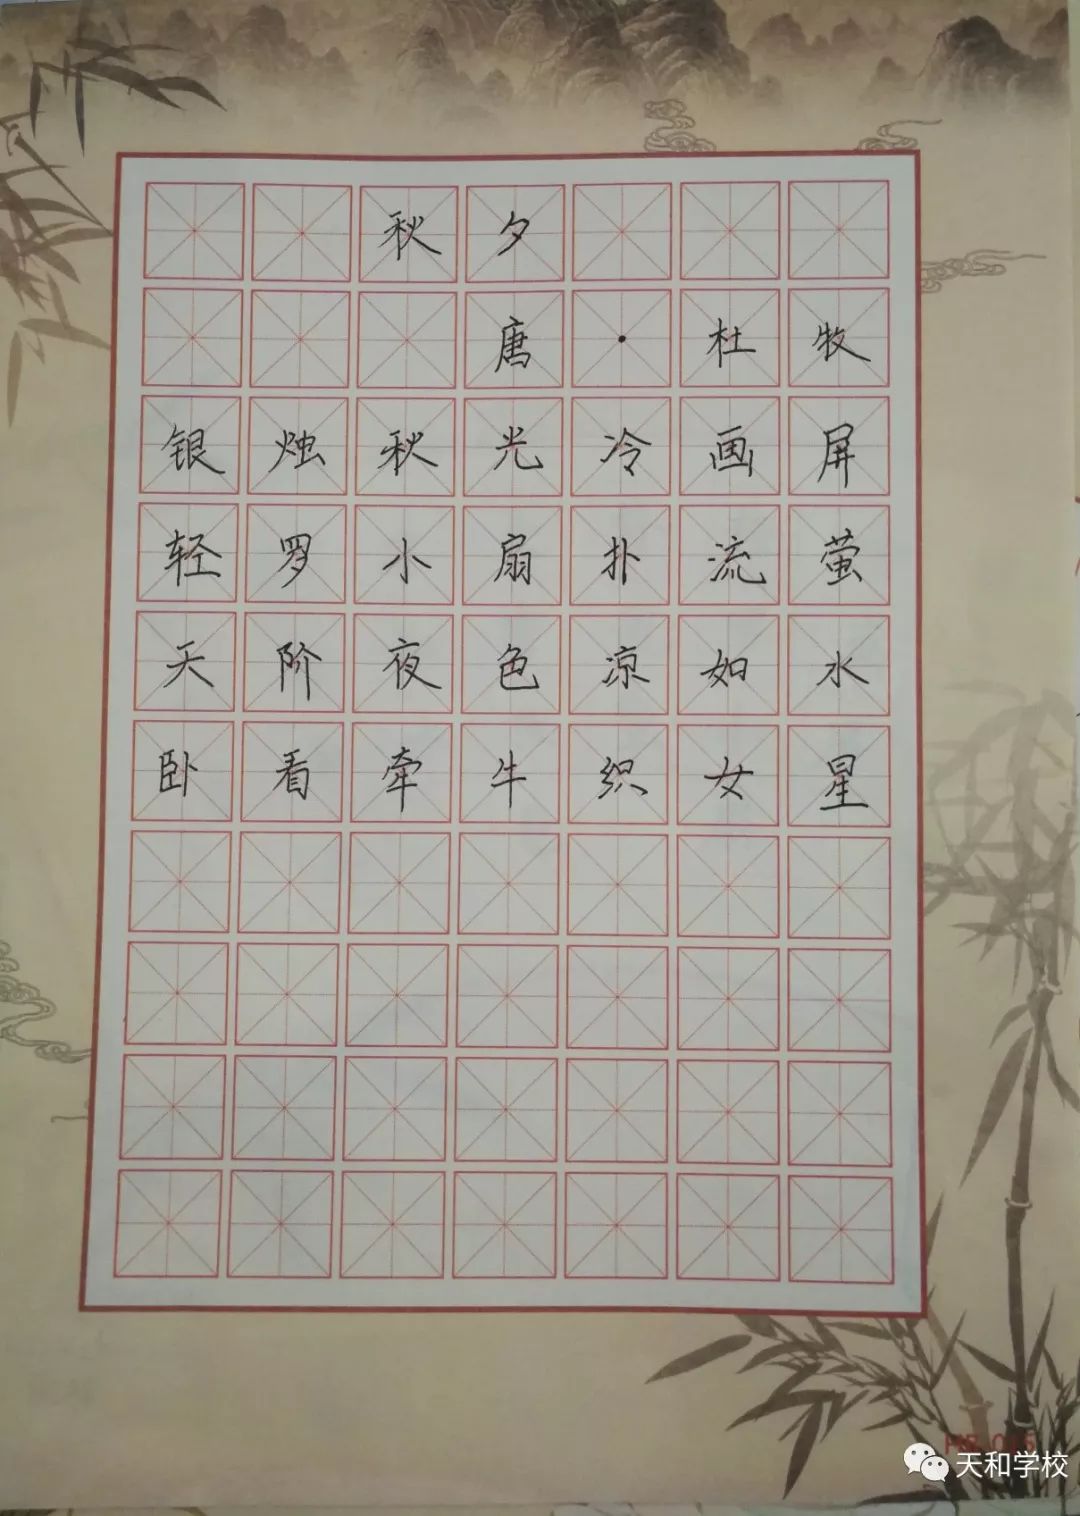 秋夕
唐·杜牧
银烛秋光冷画屏
轻罗小扇扑流萤
天阶夜色凉如水
卧看牵牛织女星
天和学校